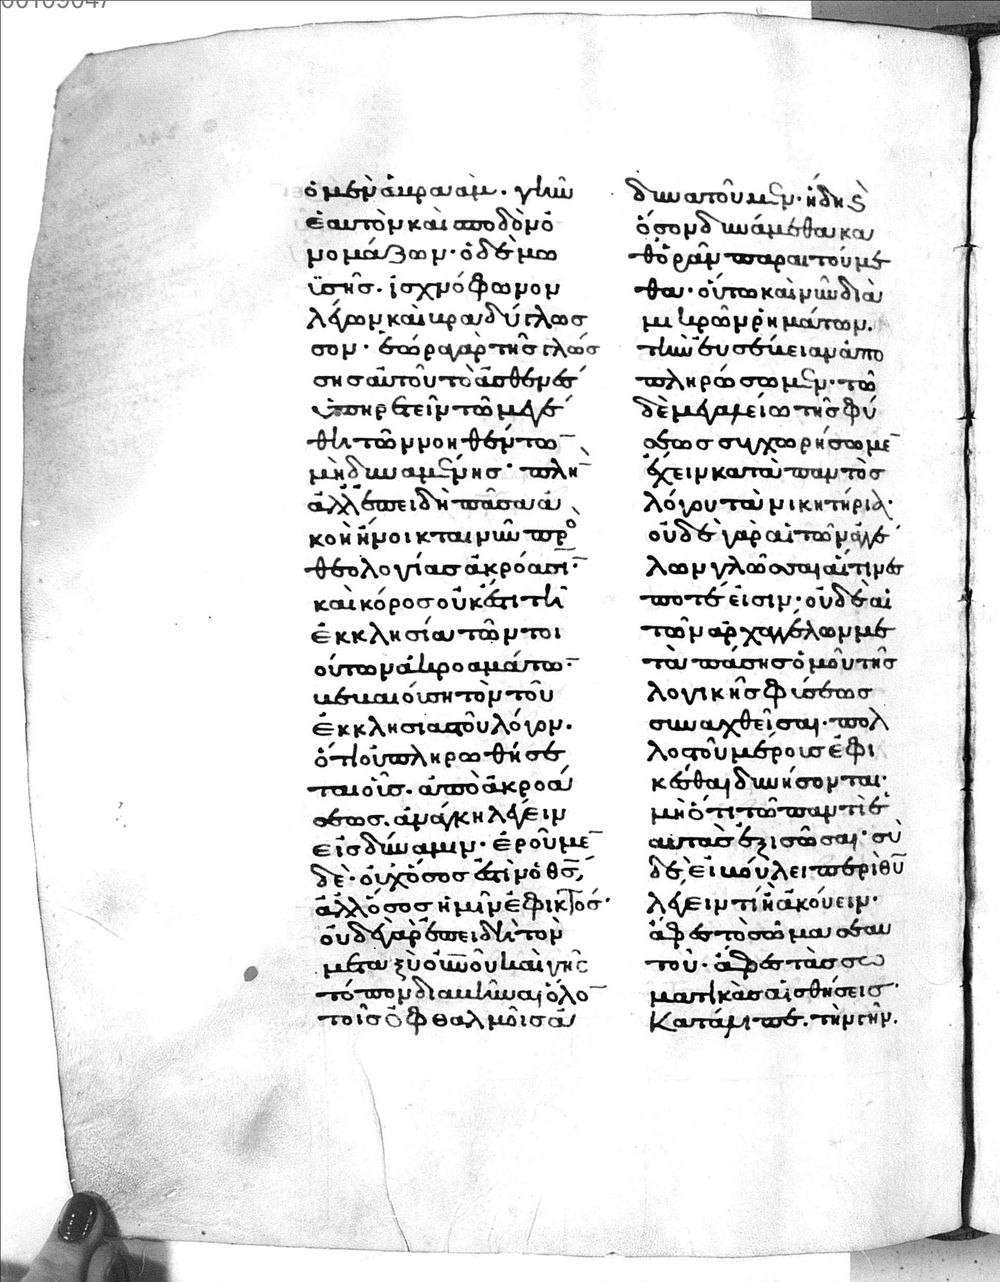 ὁ μὲν ἀβρααμ· γῆν
ἑαυτὸν καὶ σποδὸν ὀ
νομάζων· ὁ δὲ μω
ϋσῆσ. ἰσχνόφωνον
λέγων καὶ βραδύγλωσ
σον· ἑώρα γὰρ τῆσ γλώσ
σησ αὐτοῦ τὸ ἀσθενὲσ
ὑπηρετεῖν τῶ μεγέ
θει τῶν νοηθέντω
μὴ δυναμένησ· πλὴ
ἀλλ' ἐπειδὴ πᾶσα ἀ
κοὴ ἤνοικται νῦν πρὸ
θεολογίασ ἀκρόασιν·
καὶ κόροσ οὐκ ἔτι τῆ
ἐκκλησία τῶν τοι
ούτων ἀκροαμάτω·
βεβαιούση τὸν τοῦ
ἐκκλησιαστοῦ λόγον·
ὅτι οὐ πληρωθήσε
ται οὖσ. ἀπὸ ἀκροά
σεωσ. ἀνάγκη λέγειν
εἰσ δύναμιν· ἐροῦμε
δὲ· οὐχ ὅσοσ ἐστὶν ὁ θσ,
ἀλλ' ὅσοσ ἡμῖν ἐφικτόσ·
οὐδὲ γὰρ ἐπειδὴ τὸν
μεταξὺ οὐνοῦ καὶ γῆσ
τόπον διαβῆναι ὅλο
τοῖσ ὀφθαλμοῖσ ἀ
δυνατοῦμεν· ἤδη ς
ὅσον δυνάμεθα κα
θορᾶν παραιτούμε
θα· οὕτω καὶ νῦν διὰ
μικρῶν ῥημάτων.
τὴν εὐσέβειαν ἀπο
πληρώσωμεν· τῶ
δὲ μεγαλείω τῆσ φύ
σεωσ συγχωρήσωμε
ἔχειν κατὰ παντὸσ
λόγου τὰ νικητήρια.
οὐδὲ γὰρ αἱ τῶν ἀγγέ
λων γλῶσσαι αἵτινέσ
ποτέ εἰσιν· οὐδὲ αἱ
τῶν ἀρχαγγέλων με
τὰ πάσησ ὁμοῦ τῆσ
λογικῆσ φύσεωσ
συναχθεῖσαι· πολ
λοστοῦ μέρουσ ἐφι
κέσθαι δυνήσονται·
μὴ ὅτι τῶ παντὶ ἑ
αυτὰσ ἐξισῶσαι· σὺ
δὲ εἰ βούλει περὶ θῦ
λέγειν τί ἢ ἀκούειν·
ἄφεσ τὸ σῶμα σεαυ
τοῦ· ἄφεσ τὰσ σω
ματικὰσ αἰσθήσεισ·
Κατάλιπε. τὴν γῆν.